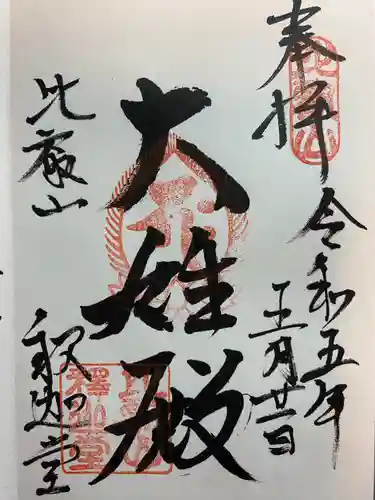 奉拝
令和五年
五月廿日
大雄殿
比叡山
釈迦堂
比叡山
釋迦堂